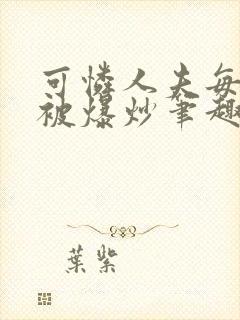 可憐人夫每
被爆炒筆趣
葉紫